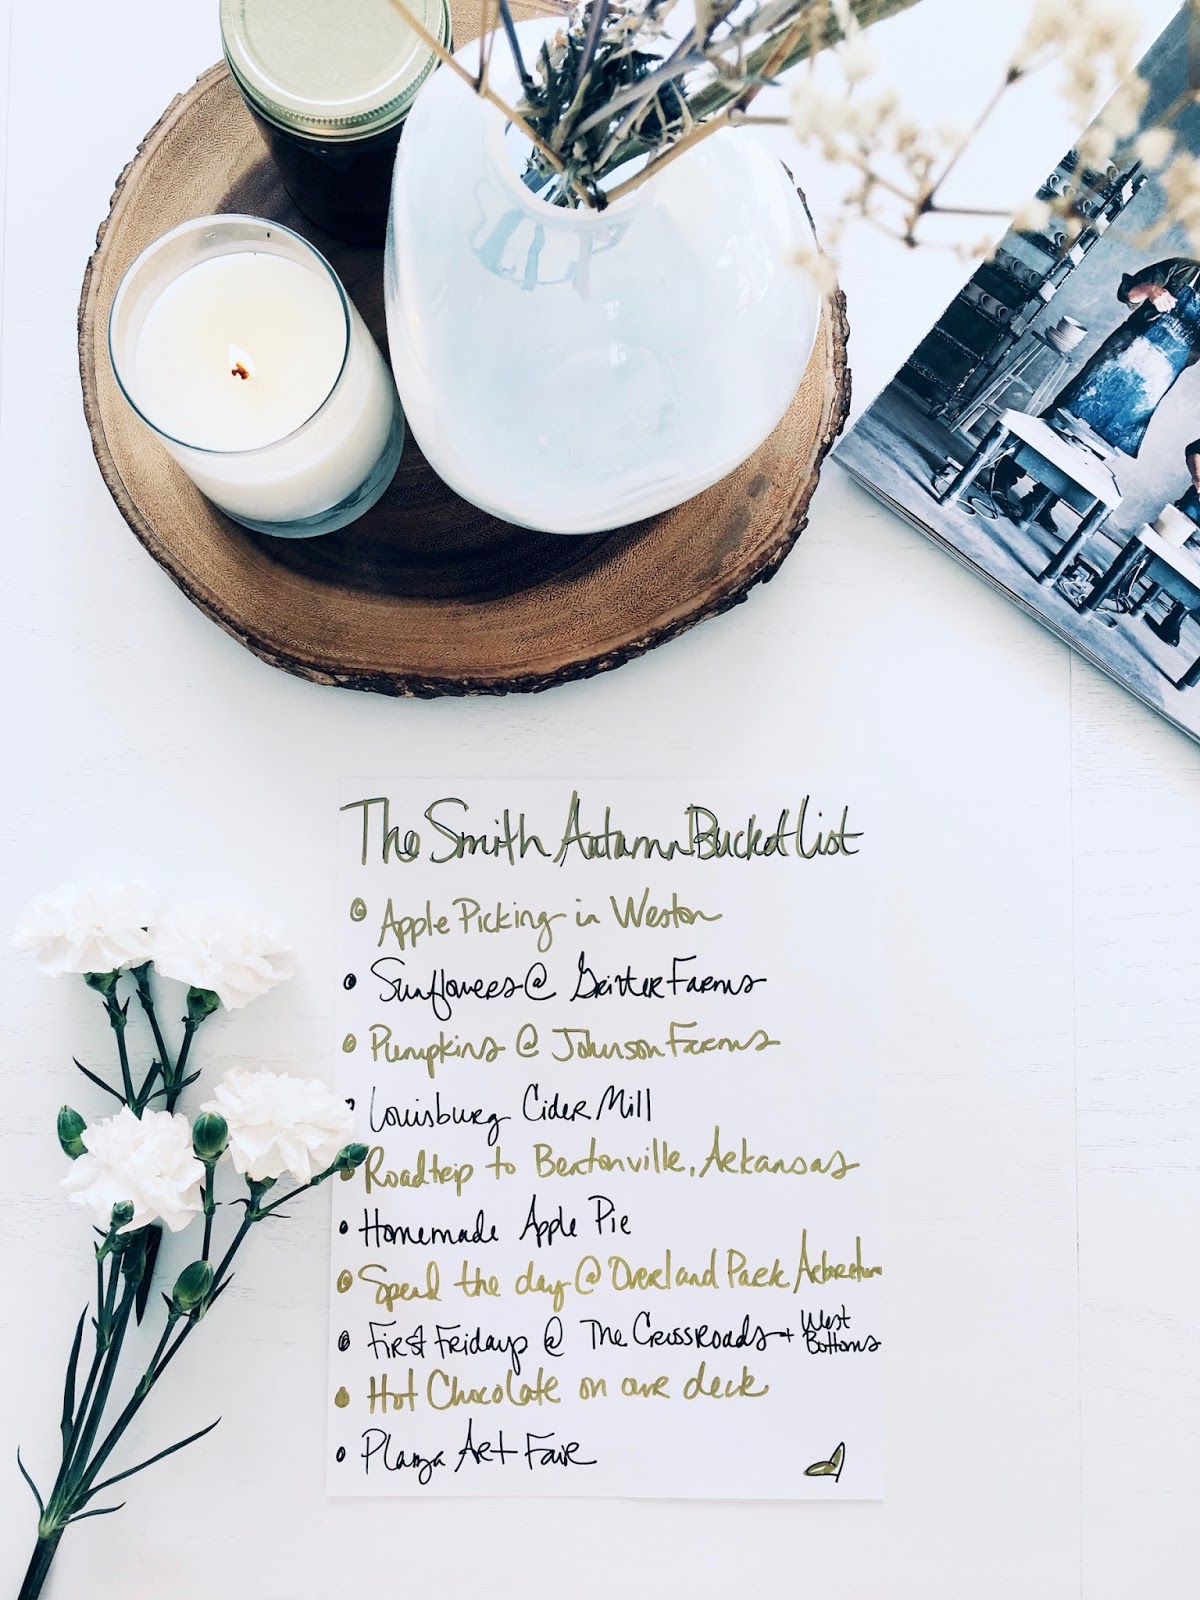 The Smith Autumn Bucket List
Apple Picking in Weston
Sunflowers @ Gritter Farms
Pumpkins @ Johnson Farms
Louisburg Cider Mill
Roadtrip to Bentonville, Arkansas
Homemade Apple Pie
Spend the day @ Overland Park Arboretum
First Fridays @ The CrossRoads + West Bottoms
Hot Chocolate on our deck
Plaza Art Fair